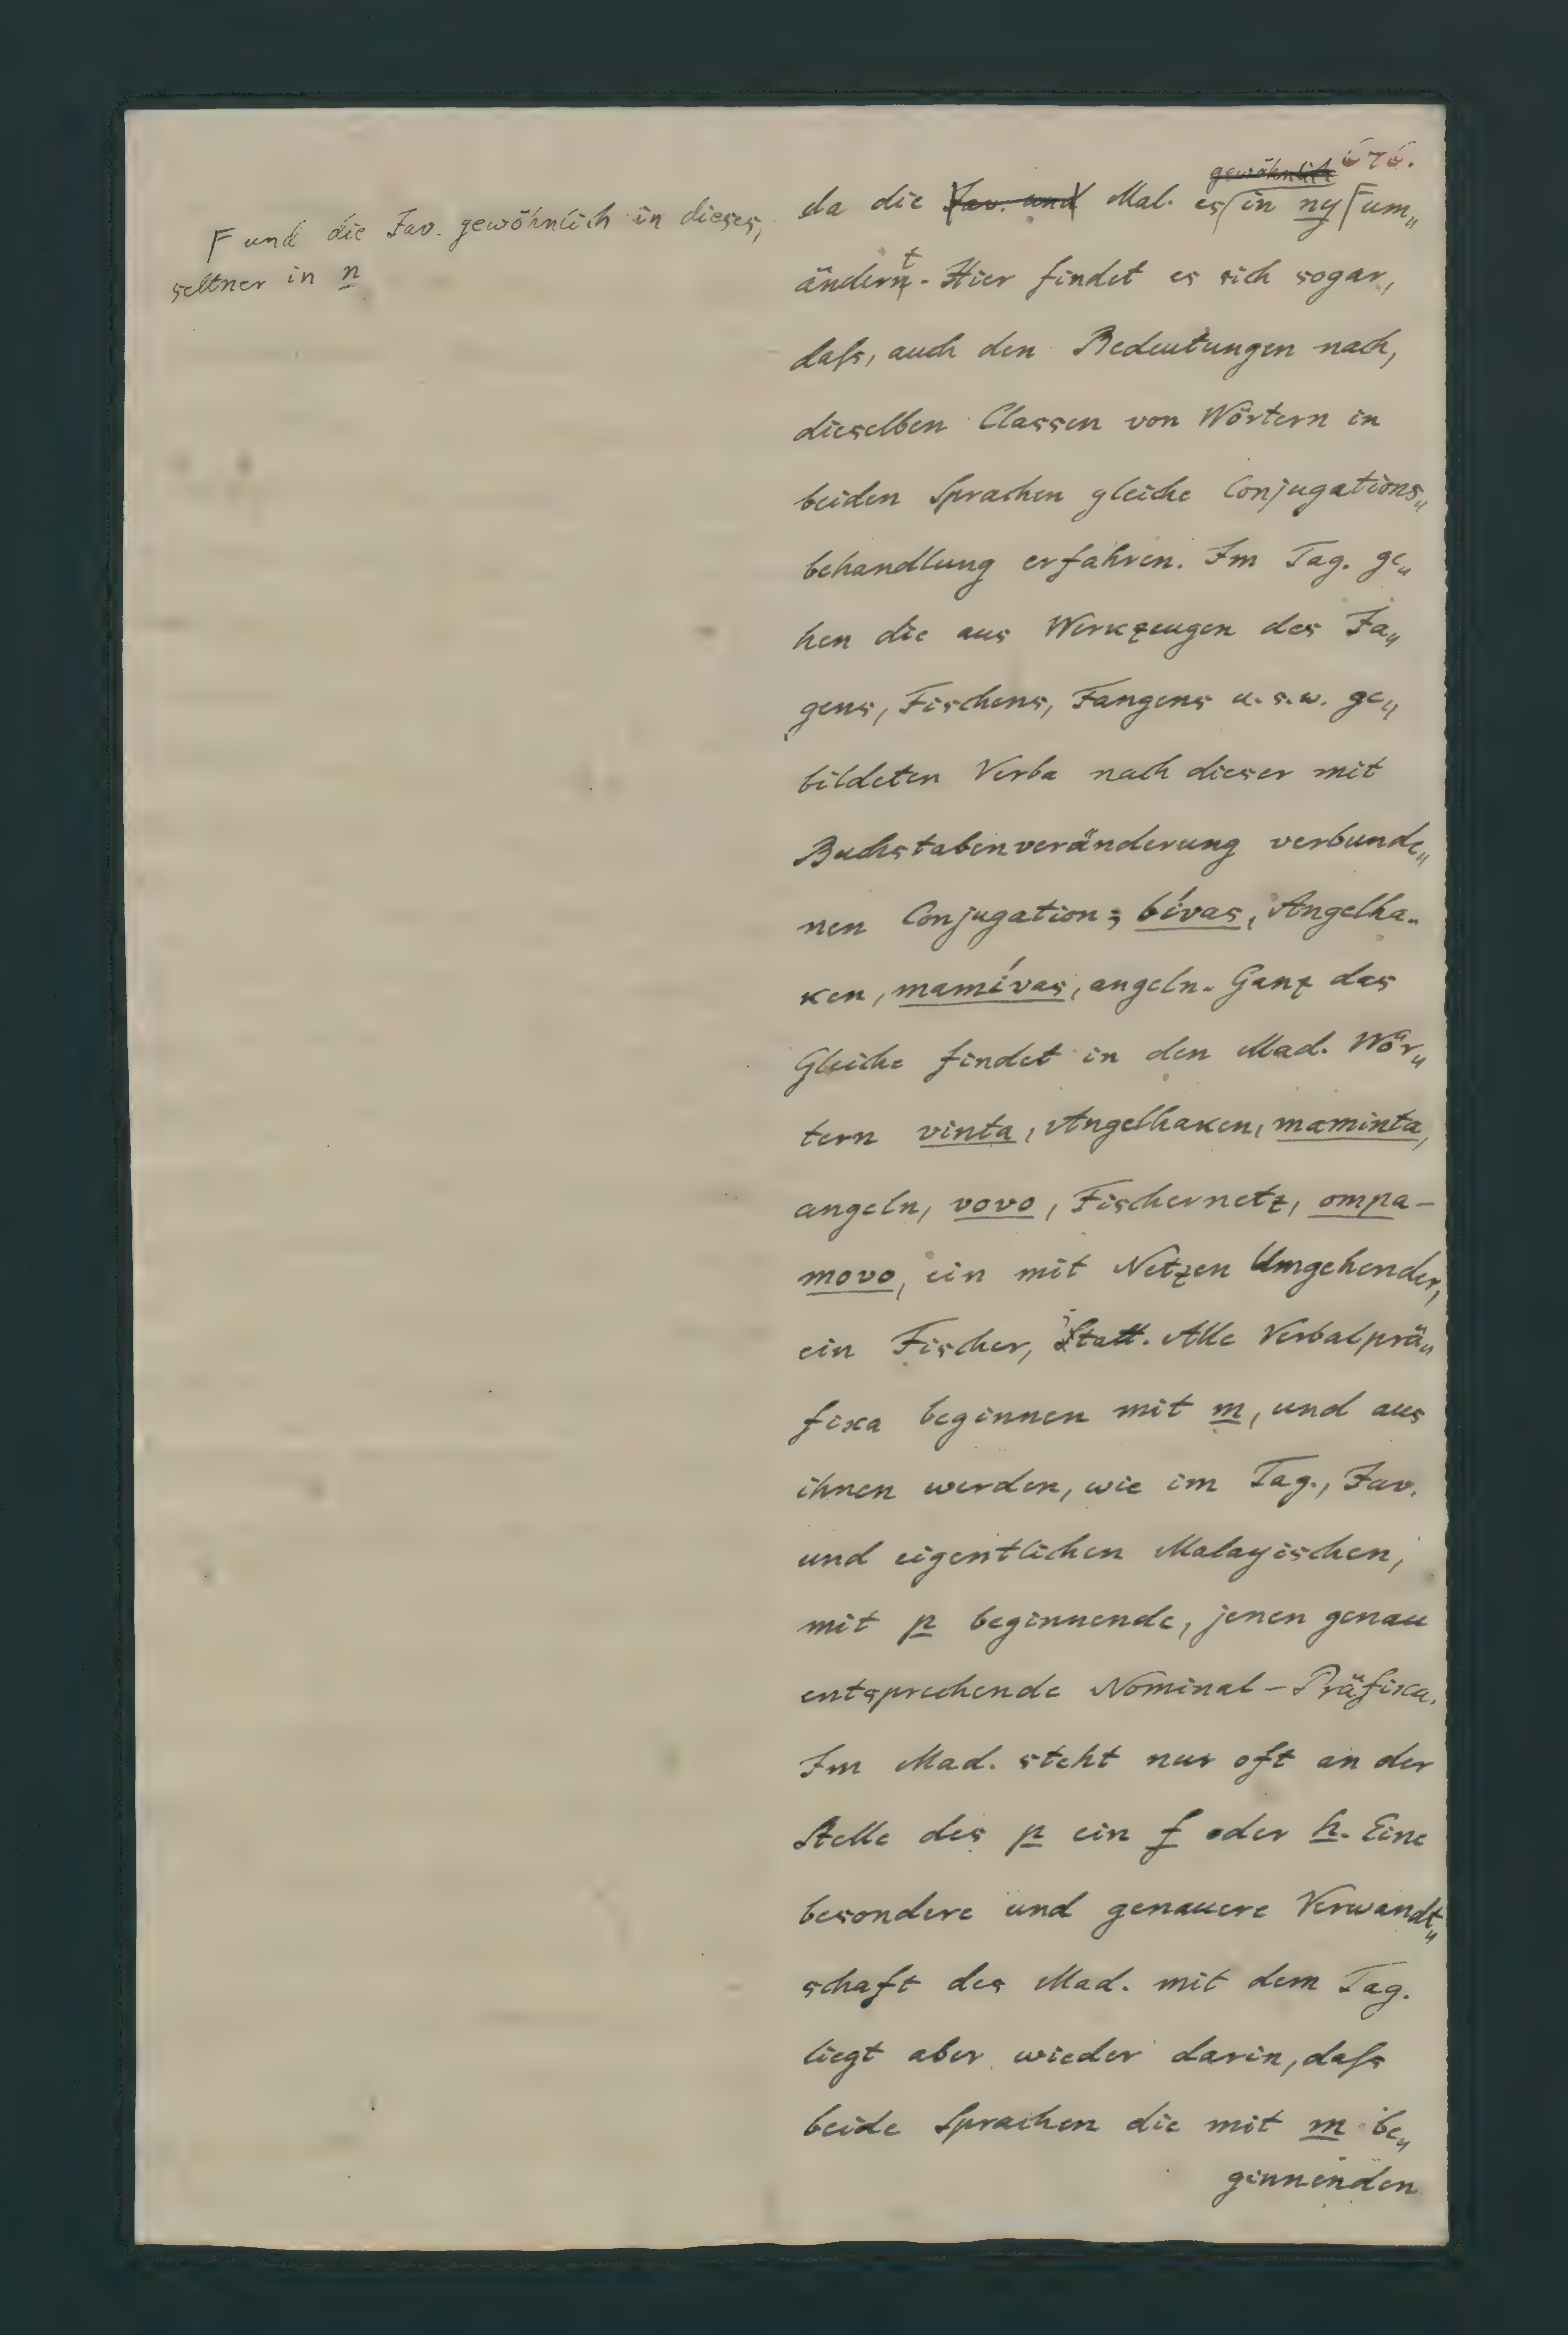 676.
gewöhnlich
da die Jav. und Mal. es in ny um„
ändernt. Hier findet es sich sogar,
daſs, auch den Bedeutungen nach,
dieselben Classen von Wörtern in
beiden Sprachen gleiche Conjugations„
behandlung erfahren. Im Tag. ge„
hen die aus Werkzeugen des Ja„
gens, Fischens, Fangens u. s. w. ge„
bildeten Verba nach dieser mit
Buchstabenveränderung verbunde„
nen Conjugation; bívas, Angelha„
ken, mamívas, angeln. Ganz das
Gleiche findet in den Mad. Wör„
tern vinta, Angelhaken, maminta,
angeln, vovo, Fischernetz, ompa-
movo, ein mit Netzen Umgehender,
ein Fischer, Statt. Alle Verbalprä„
fixa beginnen mit m, und aus
ihnen werden, wie im Tag., Jav.
und eigentlichen Malayischen,
mit p beginnende, jenen genau
entsprechende Nominal-Präfixa.
Im Mad. steht nur oft an der
Stelle des p ein f oder h. Eine
besondere und genauere Verwandt„
schaft des Mad. mit dem Tag.
liegt aber wieder darin, daſs
beide Sprachen die mit m be„
ginnenden
und die Jav. gewöhnlich in dieses,
seltner in n